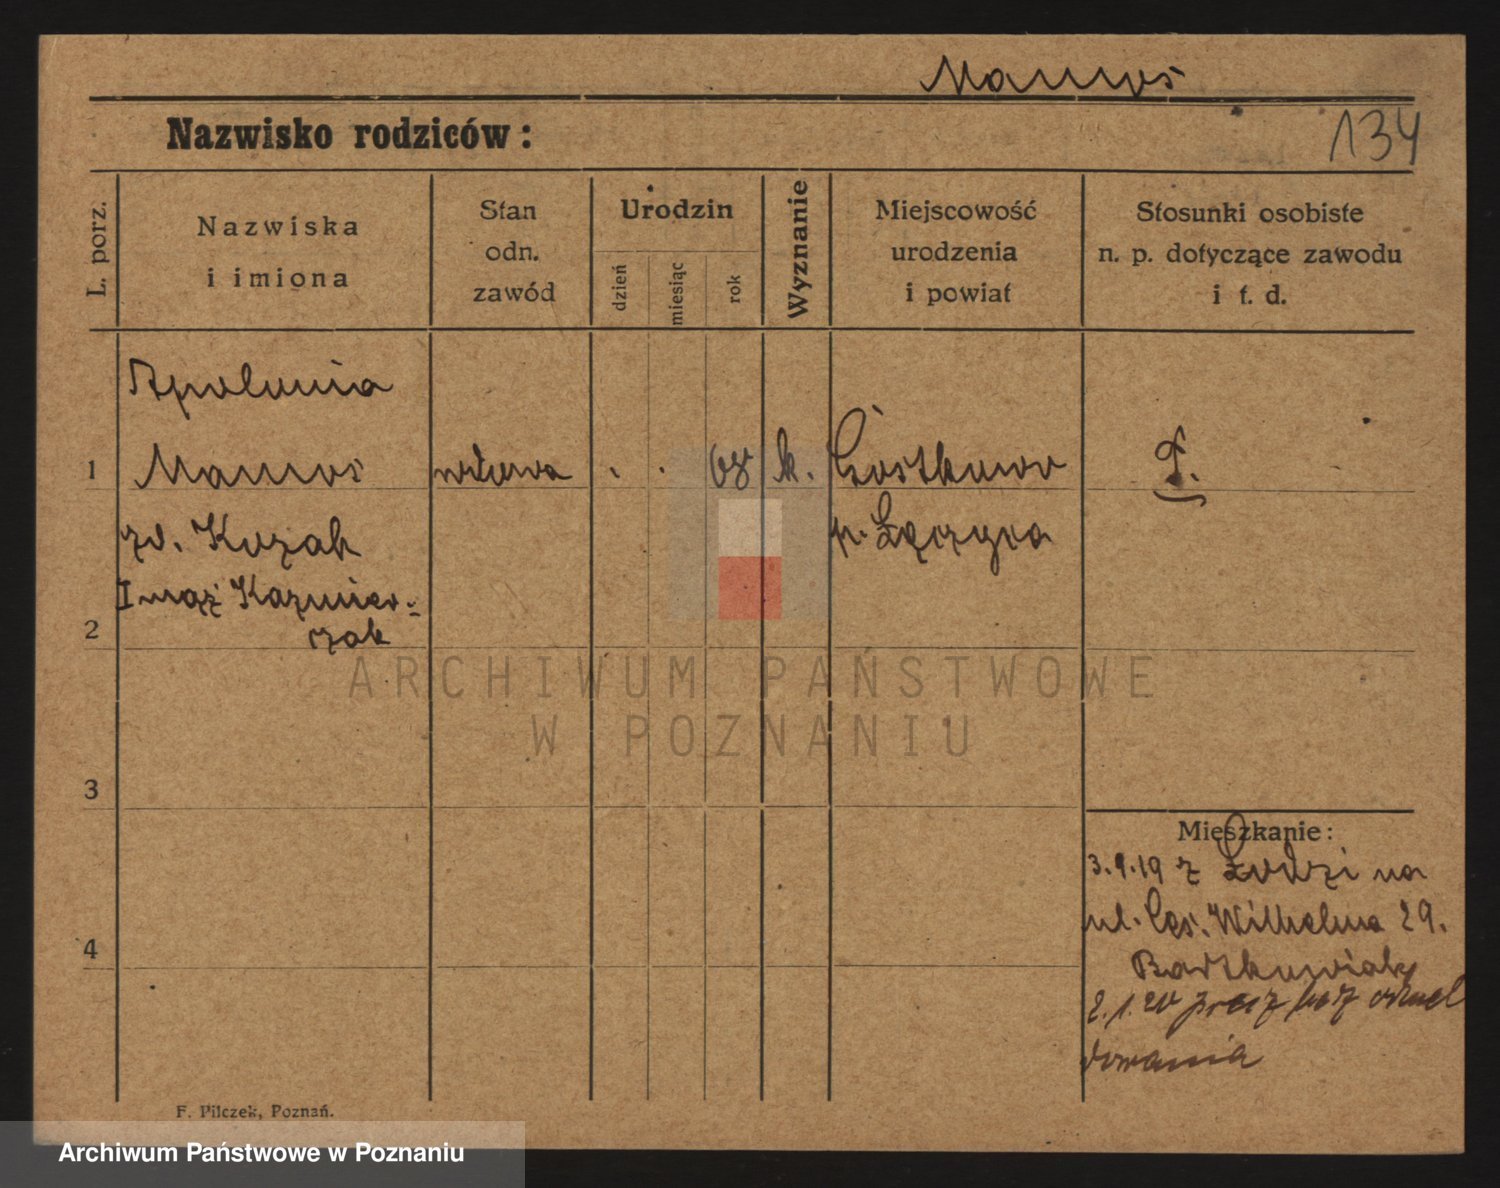 Mamoś
134
Nazwisko rodziców:
L. porz.
Nazwiska
i imiona
Stan
odn.
zawód
Urodzin
dzień
miesiąc
rok
Wyznanie
Miejscowość
urodzenia
i powiat
Stosunki osobiste
n. p. dotyczące zawodu
i t. d.
Apolonia
1 Mamoś wdowa . . 68 k. Gostkowo P.
zd. Kozak p. Łęczyca
I mąż Kaźmier-
2 czak
ARCHIWUM PAŃSTWOWE
W POZNANIU
3
Mieszkanie:
3.9.19 z Łodzi na
ul. Ces. Wilhelma 29.
4 Bartkowiak
2.1.20 precz bez odmel
dowania
F. Pilczek, Poznań.
Archiwum Państwowe w Poznaniu